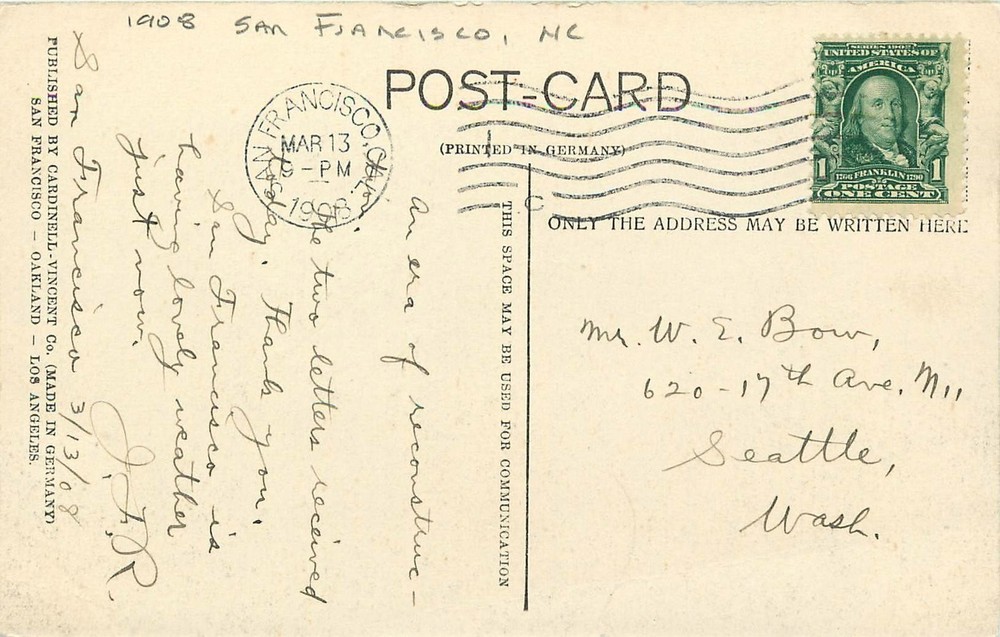 1908 SAN FRANCISCO, NC
POST-CARD
(PRINTED IN GERMANY)
SAN FRANCISCO, CAL.
MAR 13
-PM
1908
SERIES 1902
UNITED STATES OF
AMERICA
1 1
1706 FRANKLIN 1790
POSTAGE
ONE CENT
ONLY THE ADDRESS MAY BE WRITTEN HERE.
Mr. W. E. Bow,
620-17th Ave. N
Seattle,
Wash.
THIS SPACE MAY BE USED FOR COMMUNICATION
An era of reconstruc-
The two letters received
today. Thank you.
San Francisco is
having lovely weather
just now.
J. F. R.
San Francisco 3/13/08
PUBLISHED BY CARDINELL-VINCENT Co. (MADE IN GERMANY)
SAN FRANCISCO – OAKLAND – LOS ANGELES.